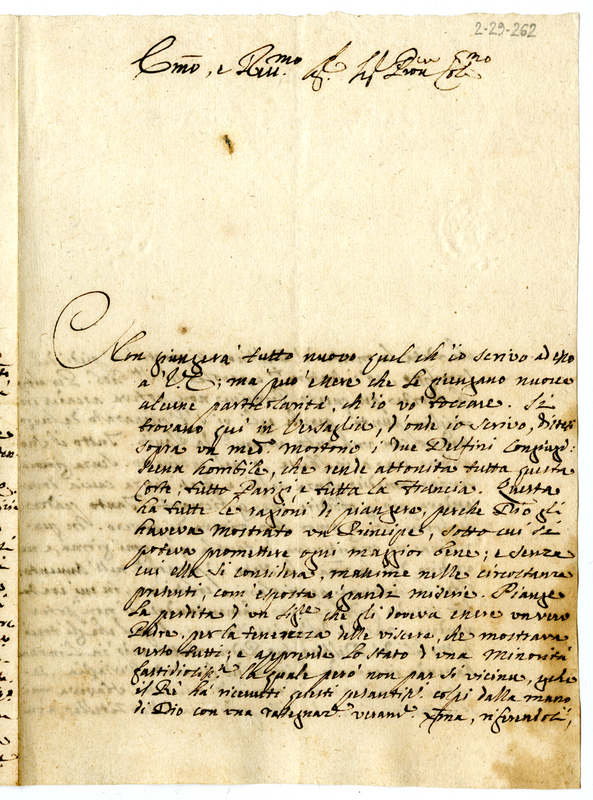 2-29-262
Emo, e Rmo Sig. Sig. Pron Colmo
Non giungerà tutto nuovo quel ch'io scrivo adesso
a V. E; ma può essere che le giungano nuove
alcune particolarità, ch'io vo' toccare. Si
trovano quì in Versaglia, d'onde io scrivo, distesi
sopra un med.o mortorio i due Delfini Congiugi:
scena horribile, che rende attonita tutta questa
Corte, tutto Parigi, e tutta la Francia. Questa
hà tutte le ragioni di piangere, perche Dio gli
haveva mostrato un Principe, sotto cui si
poteva promettere ogni maggior bene; e senza
cui ella si considera, massime nelle circostanze
presenti, com'esposta a' grandi miserie. Piange
la perdita d'un che gli doveva essere un vero
Padre, per la tenerezza delle viscere, che mostrava
verso tutti; e apprende lo stato d'una Minorità
fastidiosiss.a la quale però non par sì vicina, perche
il Rè hà ricevuti questi pesantiss.i colpi dalla mano
di Dio con una rassegnaz.e veram.e Xpna, riferendoli,